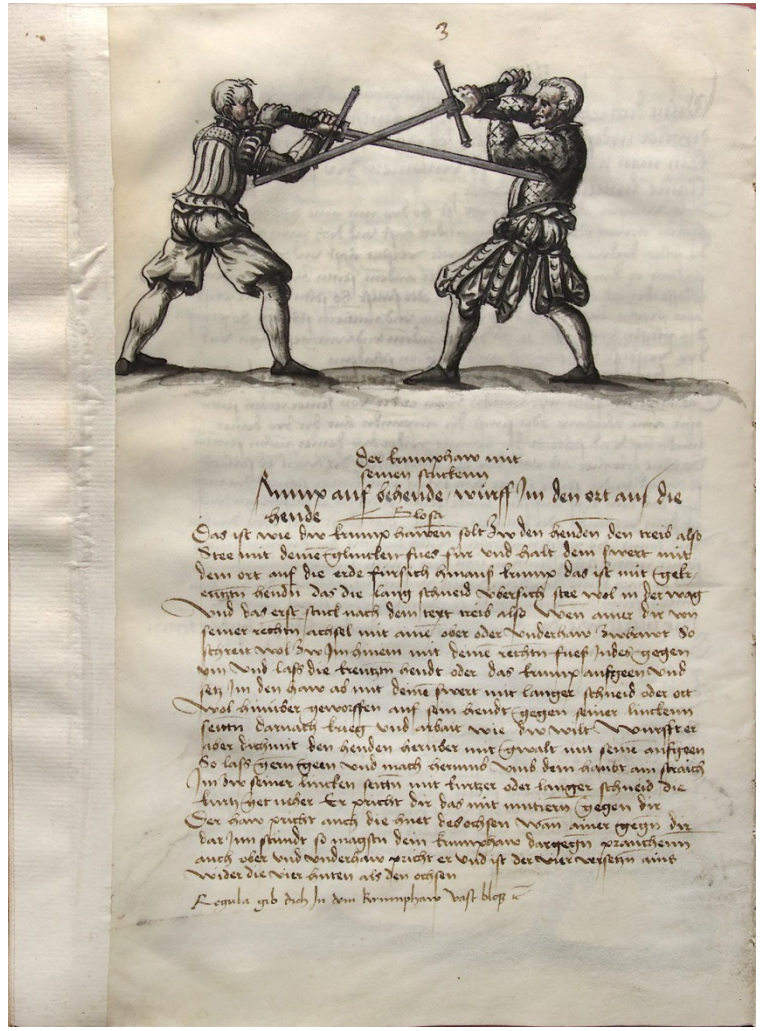 3
Der krumphaw mit
seinen stuckenn
Krump auf behende / wirff Im den ort auf die
hende Glosa
Das ist wie dw krump hawen solt Zw den henden den treib also
Stee mit deinē glincken fues für vnd halt dem swert mit
dem ort auf die erde fürsich hinaus krump das ist mit gekr
eutztn hendn das die lang schneid vbersich stee wol in der wag
Vnd das erst stuck nach dem text treib also Wen ainer dir von
seiner rechtn achsel mit ainē ober oder vnderhaw Zwhawt So
schreit wol Zw Im hinein mit deinē rechtn fuess Indes gegen
Im Vnd lass die kreutztn hendt oder das krump aufgeen Vnd
setz Im den haw ab mit deinē swert mit langer schneid oder ort
Wol hinüber geworffen auf sein hendt gegen seiner linckenn
seittn darnach krieg vnd arbait wie dw wilt Wurfft er
aber dich mit den henden herüber mit gwalt mit seinē aufgeen
So lass gern geen vnd mach herumb vmb dem haubt ain straich
Im Zw seiner lincken seittn mit kurtzer oder langer schneid die
kurtz get neher Er pricht dir das mit mutiern gegen dir
Der haw pricht auch die huet des ochsen wan ainer gegn dir
dar Inn stündt so magstu dein krumphaw dargegn prauchenn
auch ober vnd vnderhaw pricht er vnd ist der vier versetzn ains
wider die vier huten als den ochsen
Regula gib dich In dem krumphaw vast blos